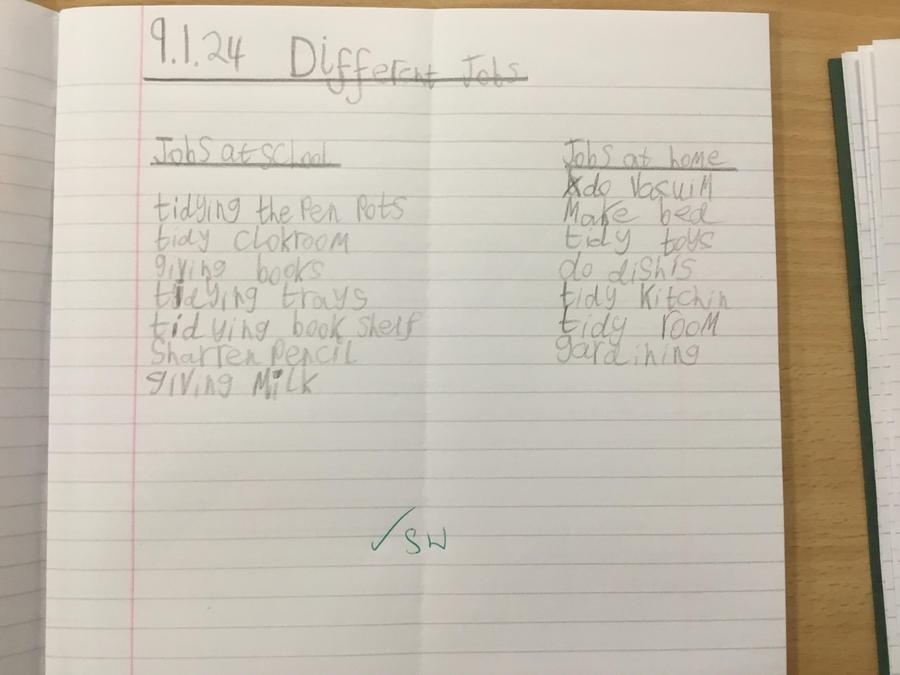 9.1.24 Different Jobs
Jobs at school
tidying the Pen Pots
tidy clokroom
giving books
tidying trays
tidying book shelf
Sharren Pencil
giving Milk
Jobs at home
do Vasuim
Make bed
tidy toys
do dishis
tidy Kitchin
tidy rooM
gardining
✓ SW